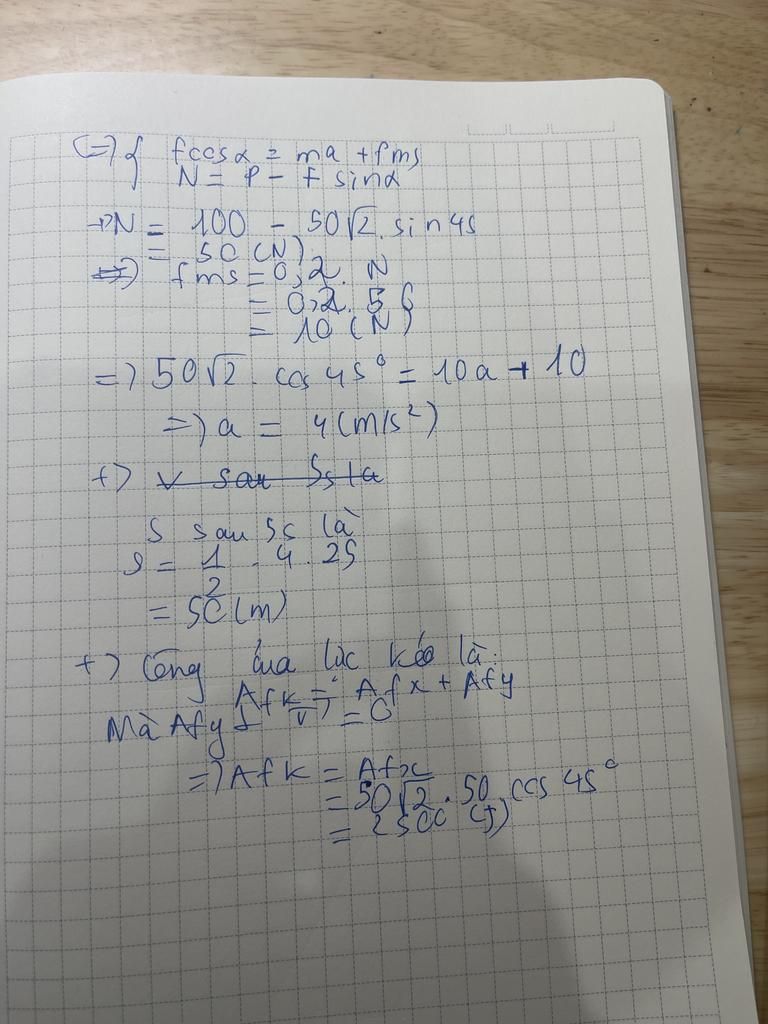 <=> { fcosα = ma + fms
N = P - f sinα
→ N = 100 - 50√2 . sin 45
= 50 (N)
=> fms = 0,2 . N
= 0,2 . 50
= 10 (N)
=> 50√2 . cos 45° = 10a + 10
=> a = 4 (m/s²)
+) v sau 5s là
S sau 5s là
s = 1/2 . 4 . 25
= 50 (m)
+) Công của lực kéo là:
Afk = Afx + Afy
Mà Afy ⊥ = 0
=> Afk = Afx
= 50√2 . 50 . cos 45°
= 2500 (J)